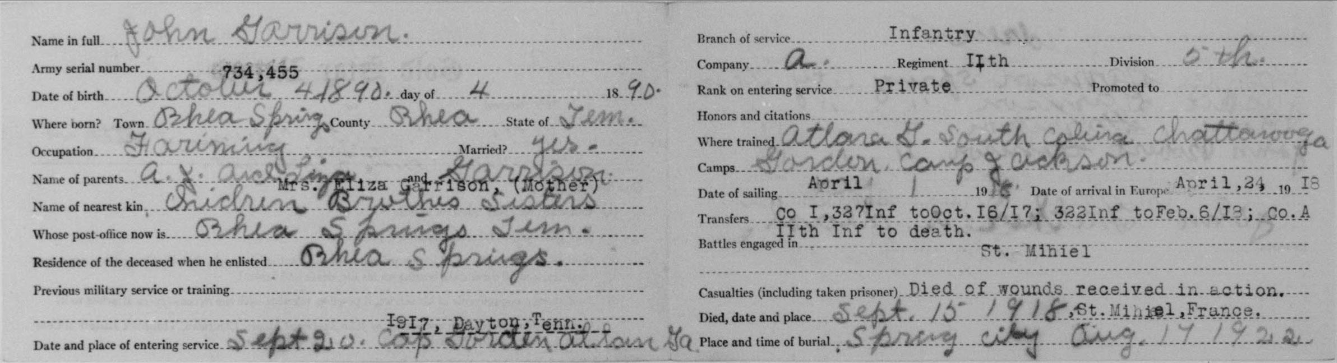 Name in full John Garrison.
Army serial number 734,455
Date of birth October 4 1890. day of 4 1890.
Where born? Town Rhea Springs County Rhea State of Tem.
Occupation Fariming Married? yes.
Name of parents A. J. and Liza and Garrison
Mrs. Eliza Garrison, (Mother)
Name of nearest kin Chicdren Brothes Sisters
Whose post-office now is Rhea Springs Tem.
Residence of the deceased when he enlisted Rhea Springs.
Previous military service or training
1917, Dayton, Tenn.
Date and place of entering service Sept 20. Cap Gorden Ga
Branch of service Infantry
Company A. Regiment IIth Division 5th.
Rank on entering service Private Promoted to
Honors and citations
Where trained Atlana G. South Colina Chattanooga
Camps Gordon, Camp Jackson.
Date of sailing April 1 1918. Date of arrival in Europe April, 24, 1918
Transfers Co I, 327Inf toOct. I6/I7; 322Inf toFeb. 6/I8; Co. A
IIth Inf to death.
Battles engaged in
St. Mihiel
Casualties (including taken prisoner) Died of wounds received in action.
Died, date and place Sept. 15 1918, St. Mihiel, France.
Place and time of burial Spring city Aug. 17 1922